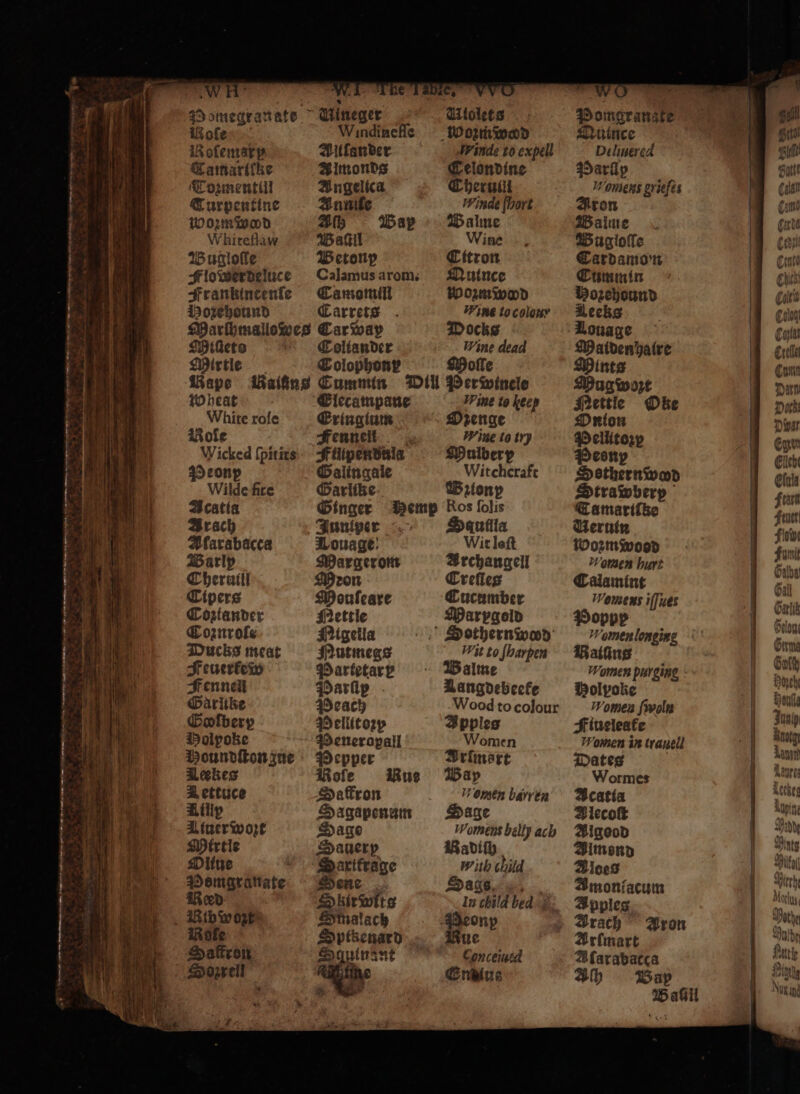 WH
W. I. The Table, VVO
WO
Pomegranate
Rose
Rosemary
Tamariske
Tormentill
Turpentine
Wormwood
Whiteflaw
Buglosse
Flowerdeluce
Frankincense
Horehound
Marshmallowes
Millets
Mirtle
Rape Raisins
Wheat
White rose
Rose
Wicked spirits
Peony
Wilde fire
Acatia
Arach
Asarabacca
Barly
Cheruill
Cipers
Coriander
Cornrose
Ducks meat
Feuerfew
Fennell
Garlike
Goosbery
Holyoke
Houndstongue
Leekes
Lettuce
Lilly
Liuerwort
Mirtle
Oliue
Pomgranate
Reed
Ribwort
Rose
Saffron
Sorrell
Uineger
Windinesse
Alisander
Almonds
Angelica
Annise
Ash Bay
Basil
Betony
Calamus arom.
Camomill
Carrets
Carway
Coliander
Colophony
Cummin Dill
Elecampane
Eringium
Fennell
Filipendula
Galingale
Garlike
Ginger Hemp
Juniper
Louage
Margerom
Myron
Mouseare
Nettle
Nigella
Nutmegs
Parietary
Parsly
Peach
Pellitory
Peneroyall
Pepper
Rose Rue
Saffron
Sagapenum
Sage
Sauery
Saxifrage
Sene
Skirwits
Smalach
Spikenard
Squinant
Uiolets
Wormwood
Winde to expell
Celondine
Cheruill
Winde short
Balme
Wine
Citron
Quince
Wormwood
Wine to colour
Docks
Wine dead
Mosse
Perwincle
Wine to keep
Orenge
Wine to try
Mulbery
Witchcraft
Briony
Ros solis
Squilla
Wit lost
Archangell
Cresses
Cucumber
Marygold
Sothernwood
Wit to sharpen
Balme
Langdebeefe
Wood to colour
Apples
Women
Arsmart
Bay
Women barren
Sage
Womens belly ach
Radish
With child
Sage
In child bed
Peony
Rue
Conceiued
Endiue
Pomgranate
Quince
Deliuered
Parsly
Womens griefes
Aron
Balme
Buglosse
Cardamon
Cummin
Horehound
Leeks
Louage
Maidenhaire
Mints
Mugwort
Nettle Oke
Onion
Pellitory
Peony
Sothernwood
Strawbery
Tamariske
Veruin
Wormwood
Women hurt
Calamint
Womens issues
Poppy
Women longing
Raisins
Women purging
Holyoke
Women swoln
Fiueleafe
Women in trauell
Dates
Wormes
Acatia
Alecost
Algood
Almond
Aloes
Amoniacum
Apples
Arach Aron
Arsmart
Asarabacca
Ash Bay
Basil